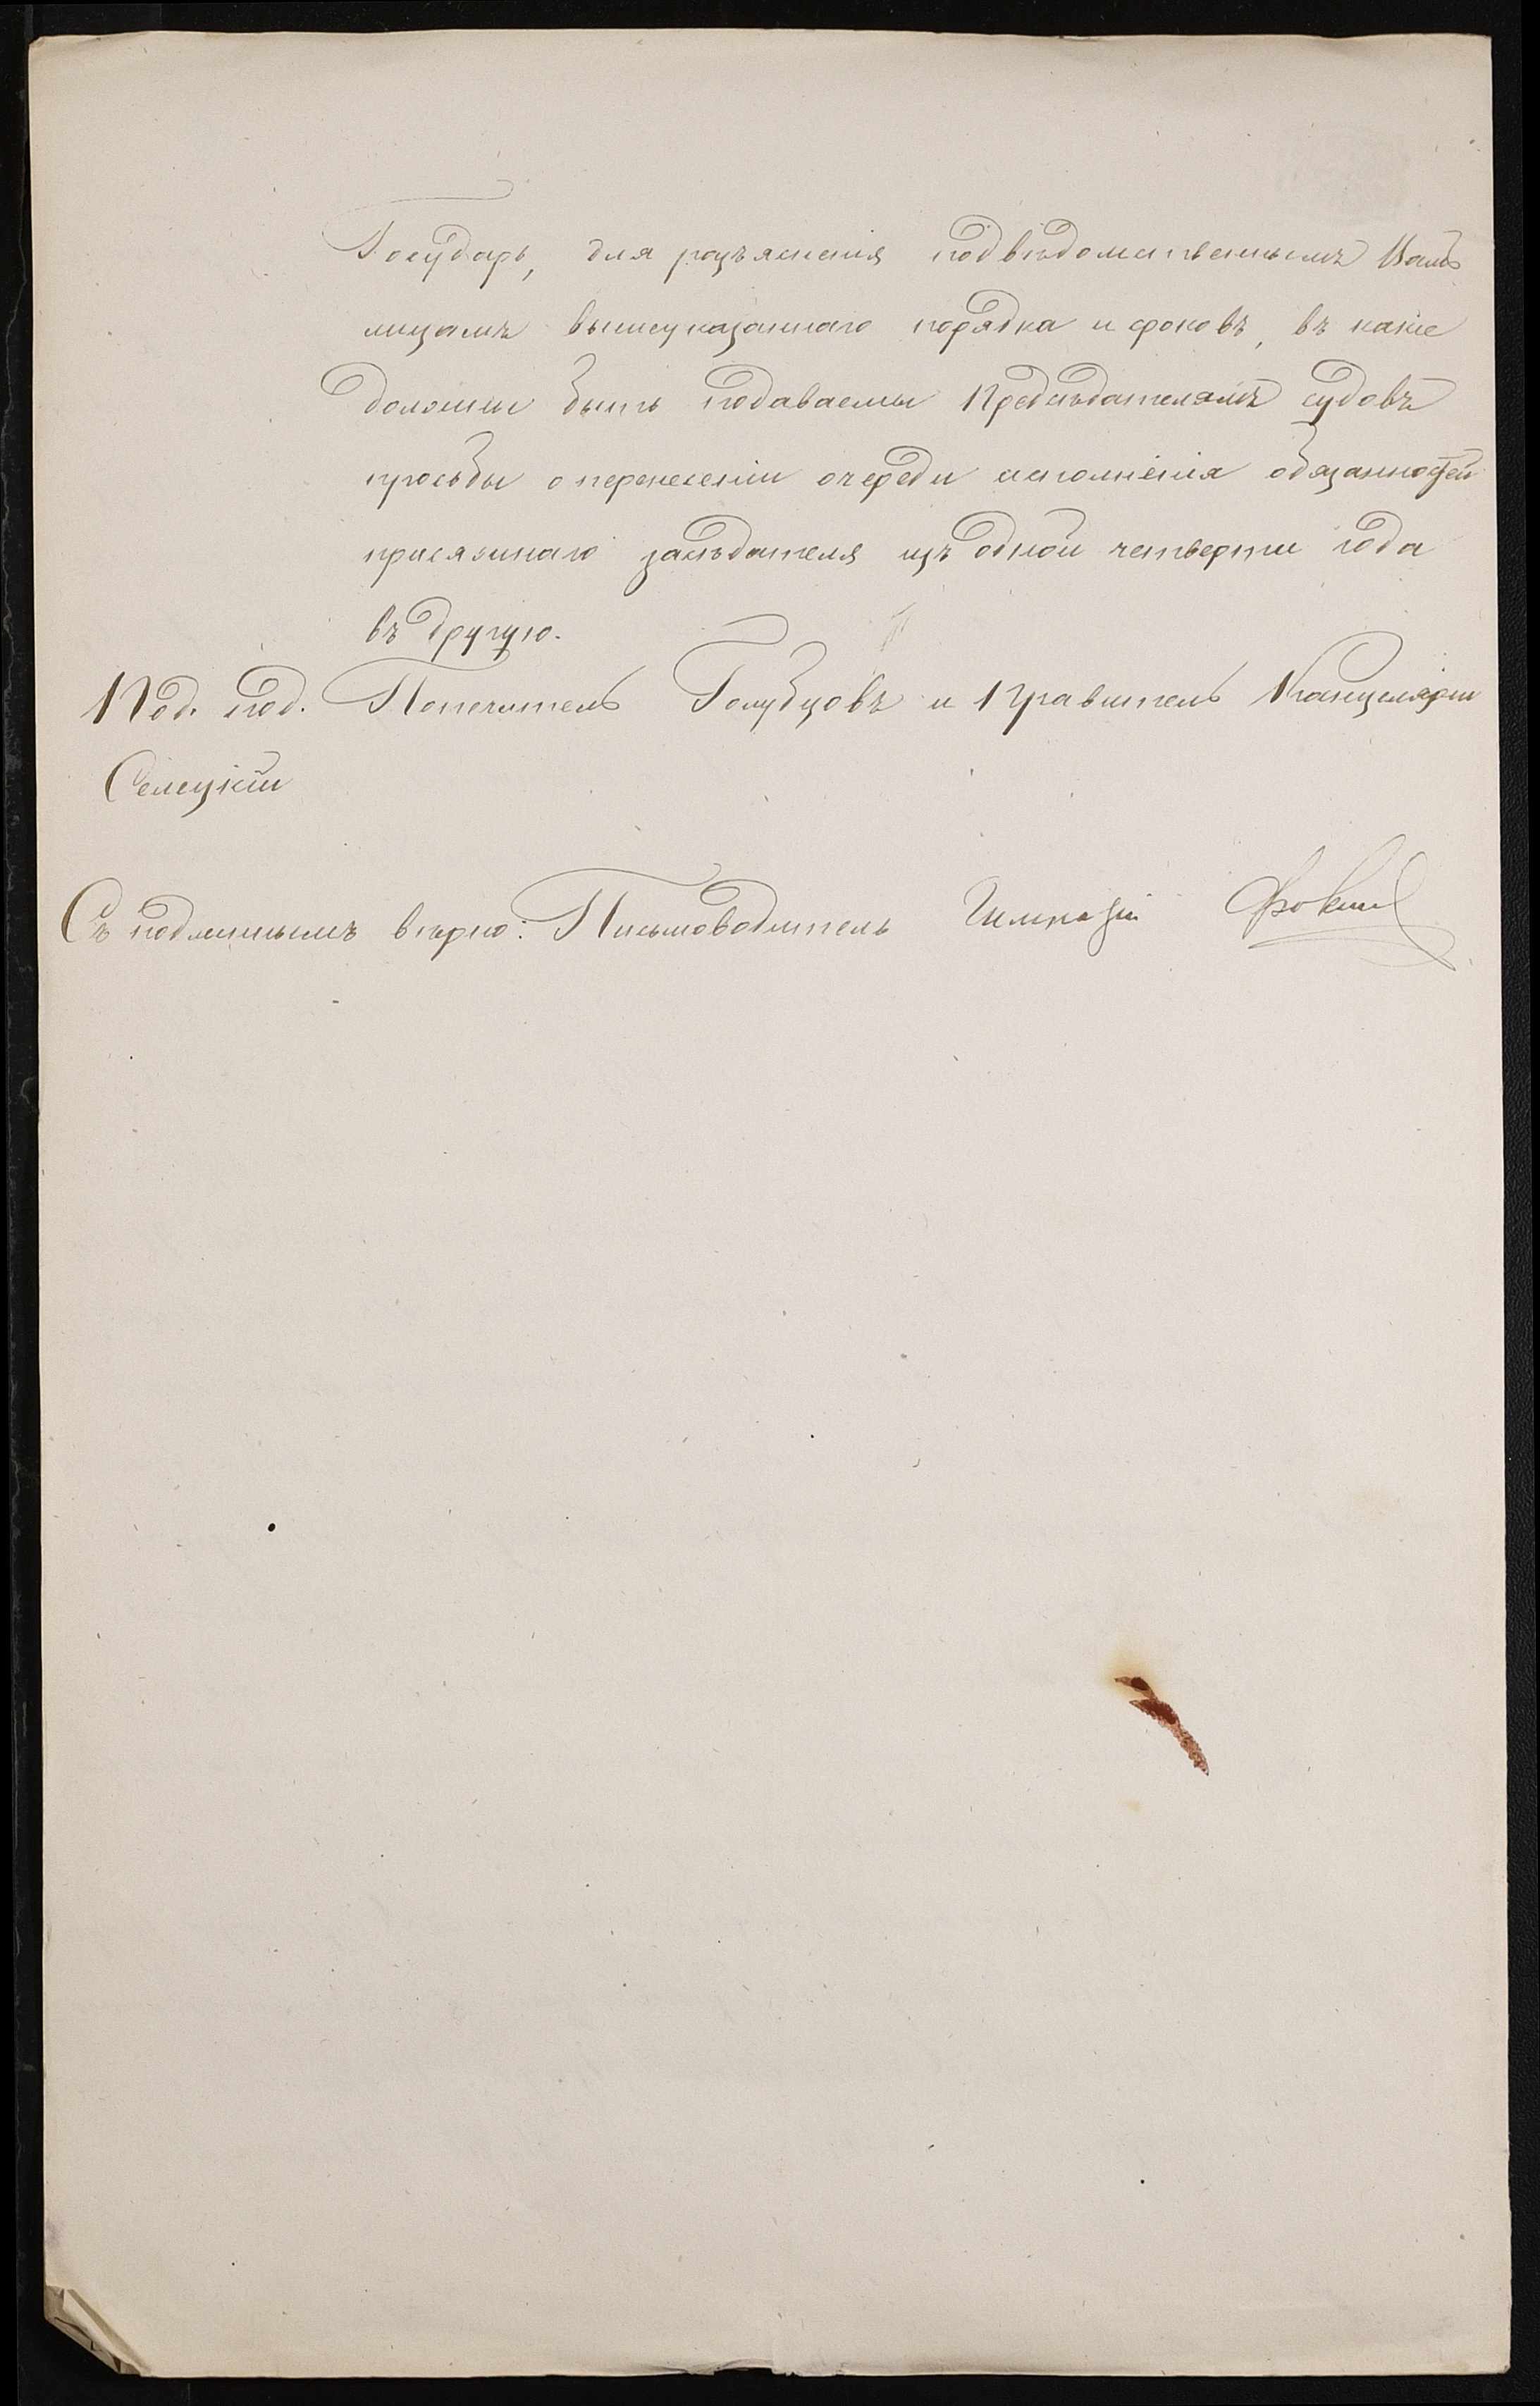 Государь, для разъясненія подвѣдомственнымъ Вамъ
лицамъ вышеуказаннаго порядка и сроковъ, въ какіе
должны быть подаваемы Предсѣдателямъ судовъ
просьбы о перенесеніи очереди исполненія обязанностей
присяжнаго засѣдателя изъ одной четверти года
въ другую.
Под. под. Попечитель Голубцовъ и Правитель Канцеляріи
Селецкій
Съ подлиннымъ вѣрно: Письмоводитель Гимназіи